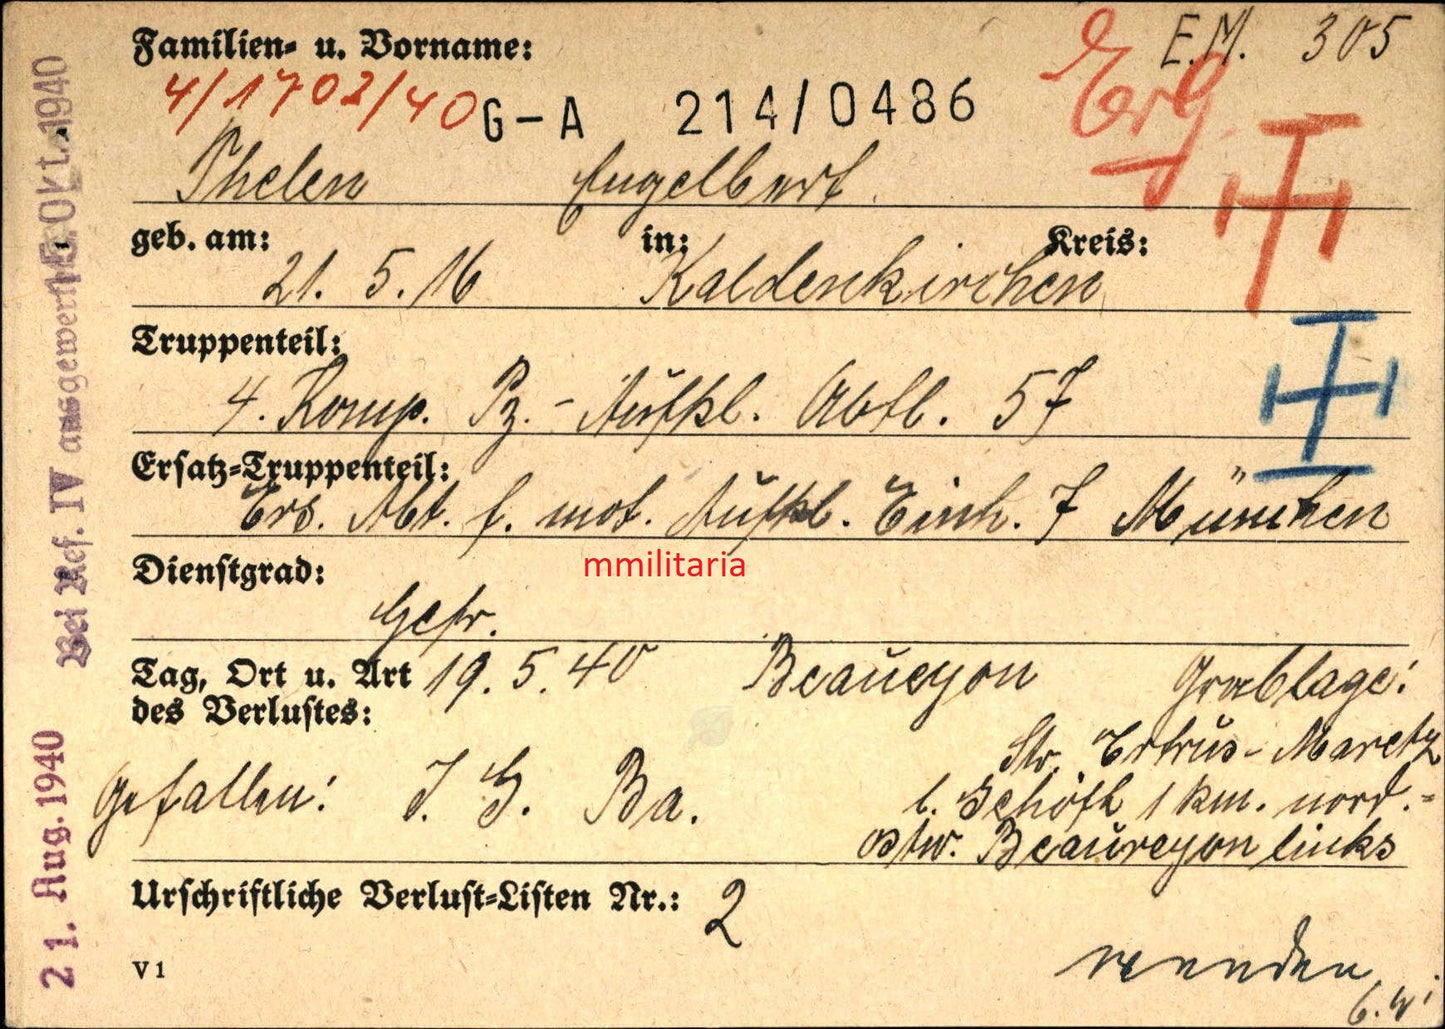 E.M. 305
Familien- u. Vorname:
Erg.
4/1702/40 G-A 214/0486
Thelen Engelbert
geb. am: in: Kreis:
21. 5. 16 Kaldenkirchen
Truppenteil:
4. Komp. Pz.-Aufkl. Abtl. 57
Ersatz-Truppenteil:
Ers. Abt. f. mot. Aufkl. Einh. 7 München
mmilitaria
Dienstgrad:
Gefr.
Tag, Ort u. Art 19. 5. 40 Beaucyon Grablage:
des Verlustes:
Str. Ertrus-Maretz
gefallen: I. G. Ba. b. Gehöft 1 km. nord.-
ostw. Beaurcyon links
Urschriftliche Verlust-Listen Nr.: 2
V 1
wenden
21. Aug. 1940
Bei Ref. IV ausgewert. 15. Okt. 1940